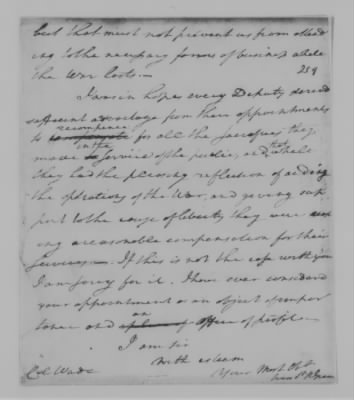 but that must not prevent us from attend
ing to the necessary forms of business while
the War lasts.—
259
I am in hopes every Deputy derived
sufficient advantage from their appointments
to recompence for all the sacrifices they
made in the service of the public, and that while
they had the pleasing reflection of aiding
the opperations of the War, and giving sup
port to the cause of liberty they were
ing a reasonable compensation for their
services— If this is not the case with you
I am sorry for it. I have ever considered
your appointment as an object of impor
tance and an office of profit.—
I am sir
with esteem
Your Most Obt
Col Wade